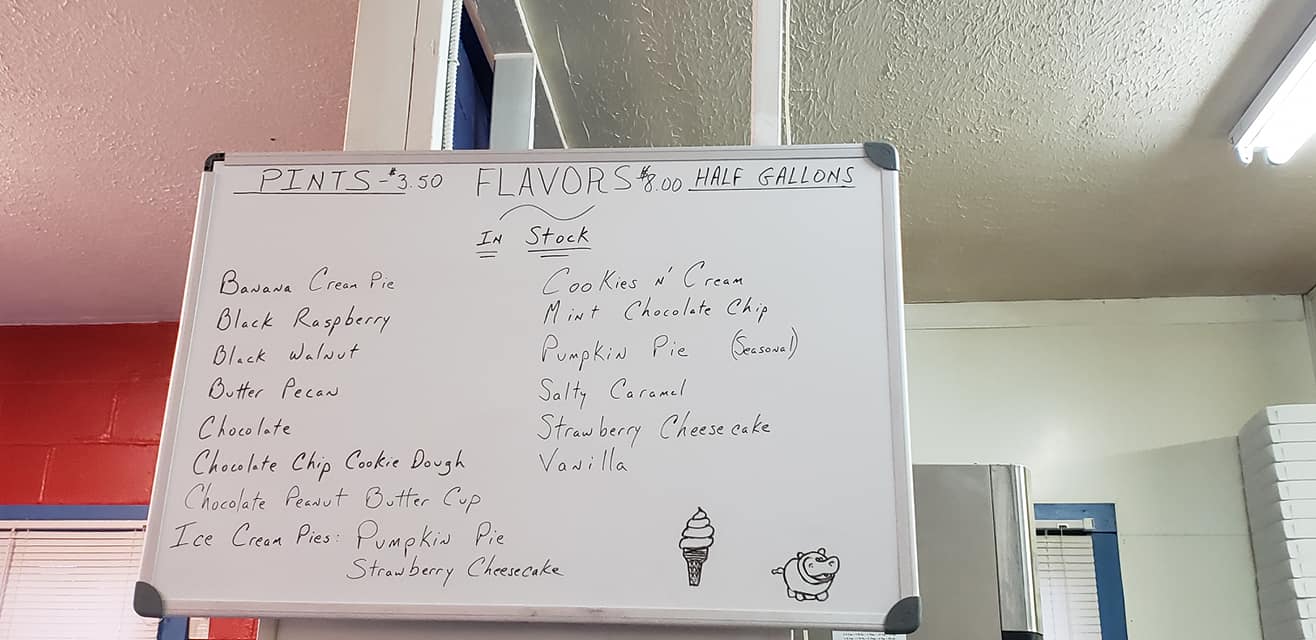 PINTS - $3.50 FLAVORS $8.00 HALF GALLONS
IN Stock
Banana Cream Pie
Black Raspberry
Black Walnut
Butter Pecan
Chocolate
Chocolate Chip Cookie Dough
Chocolate Peanut Butter Cup
Ice Cream Pies: Pumpkin Pie
Strawberry Cheesecake
Cookies N' Cream
Mint Chocolate Chip
Pumpkin Pie (Seasonal)
Salty Caramel
Strawberry Cheesecake
Vanilla